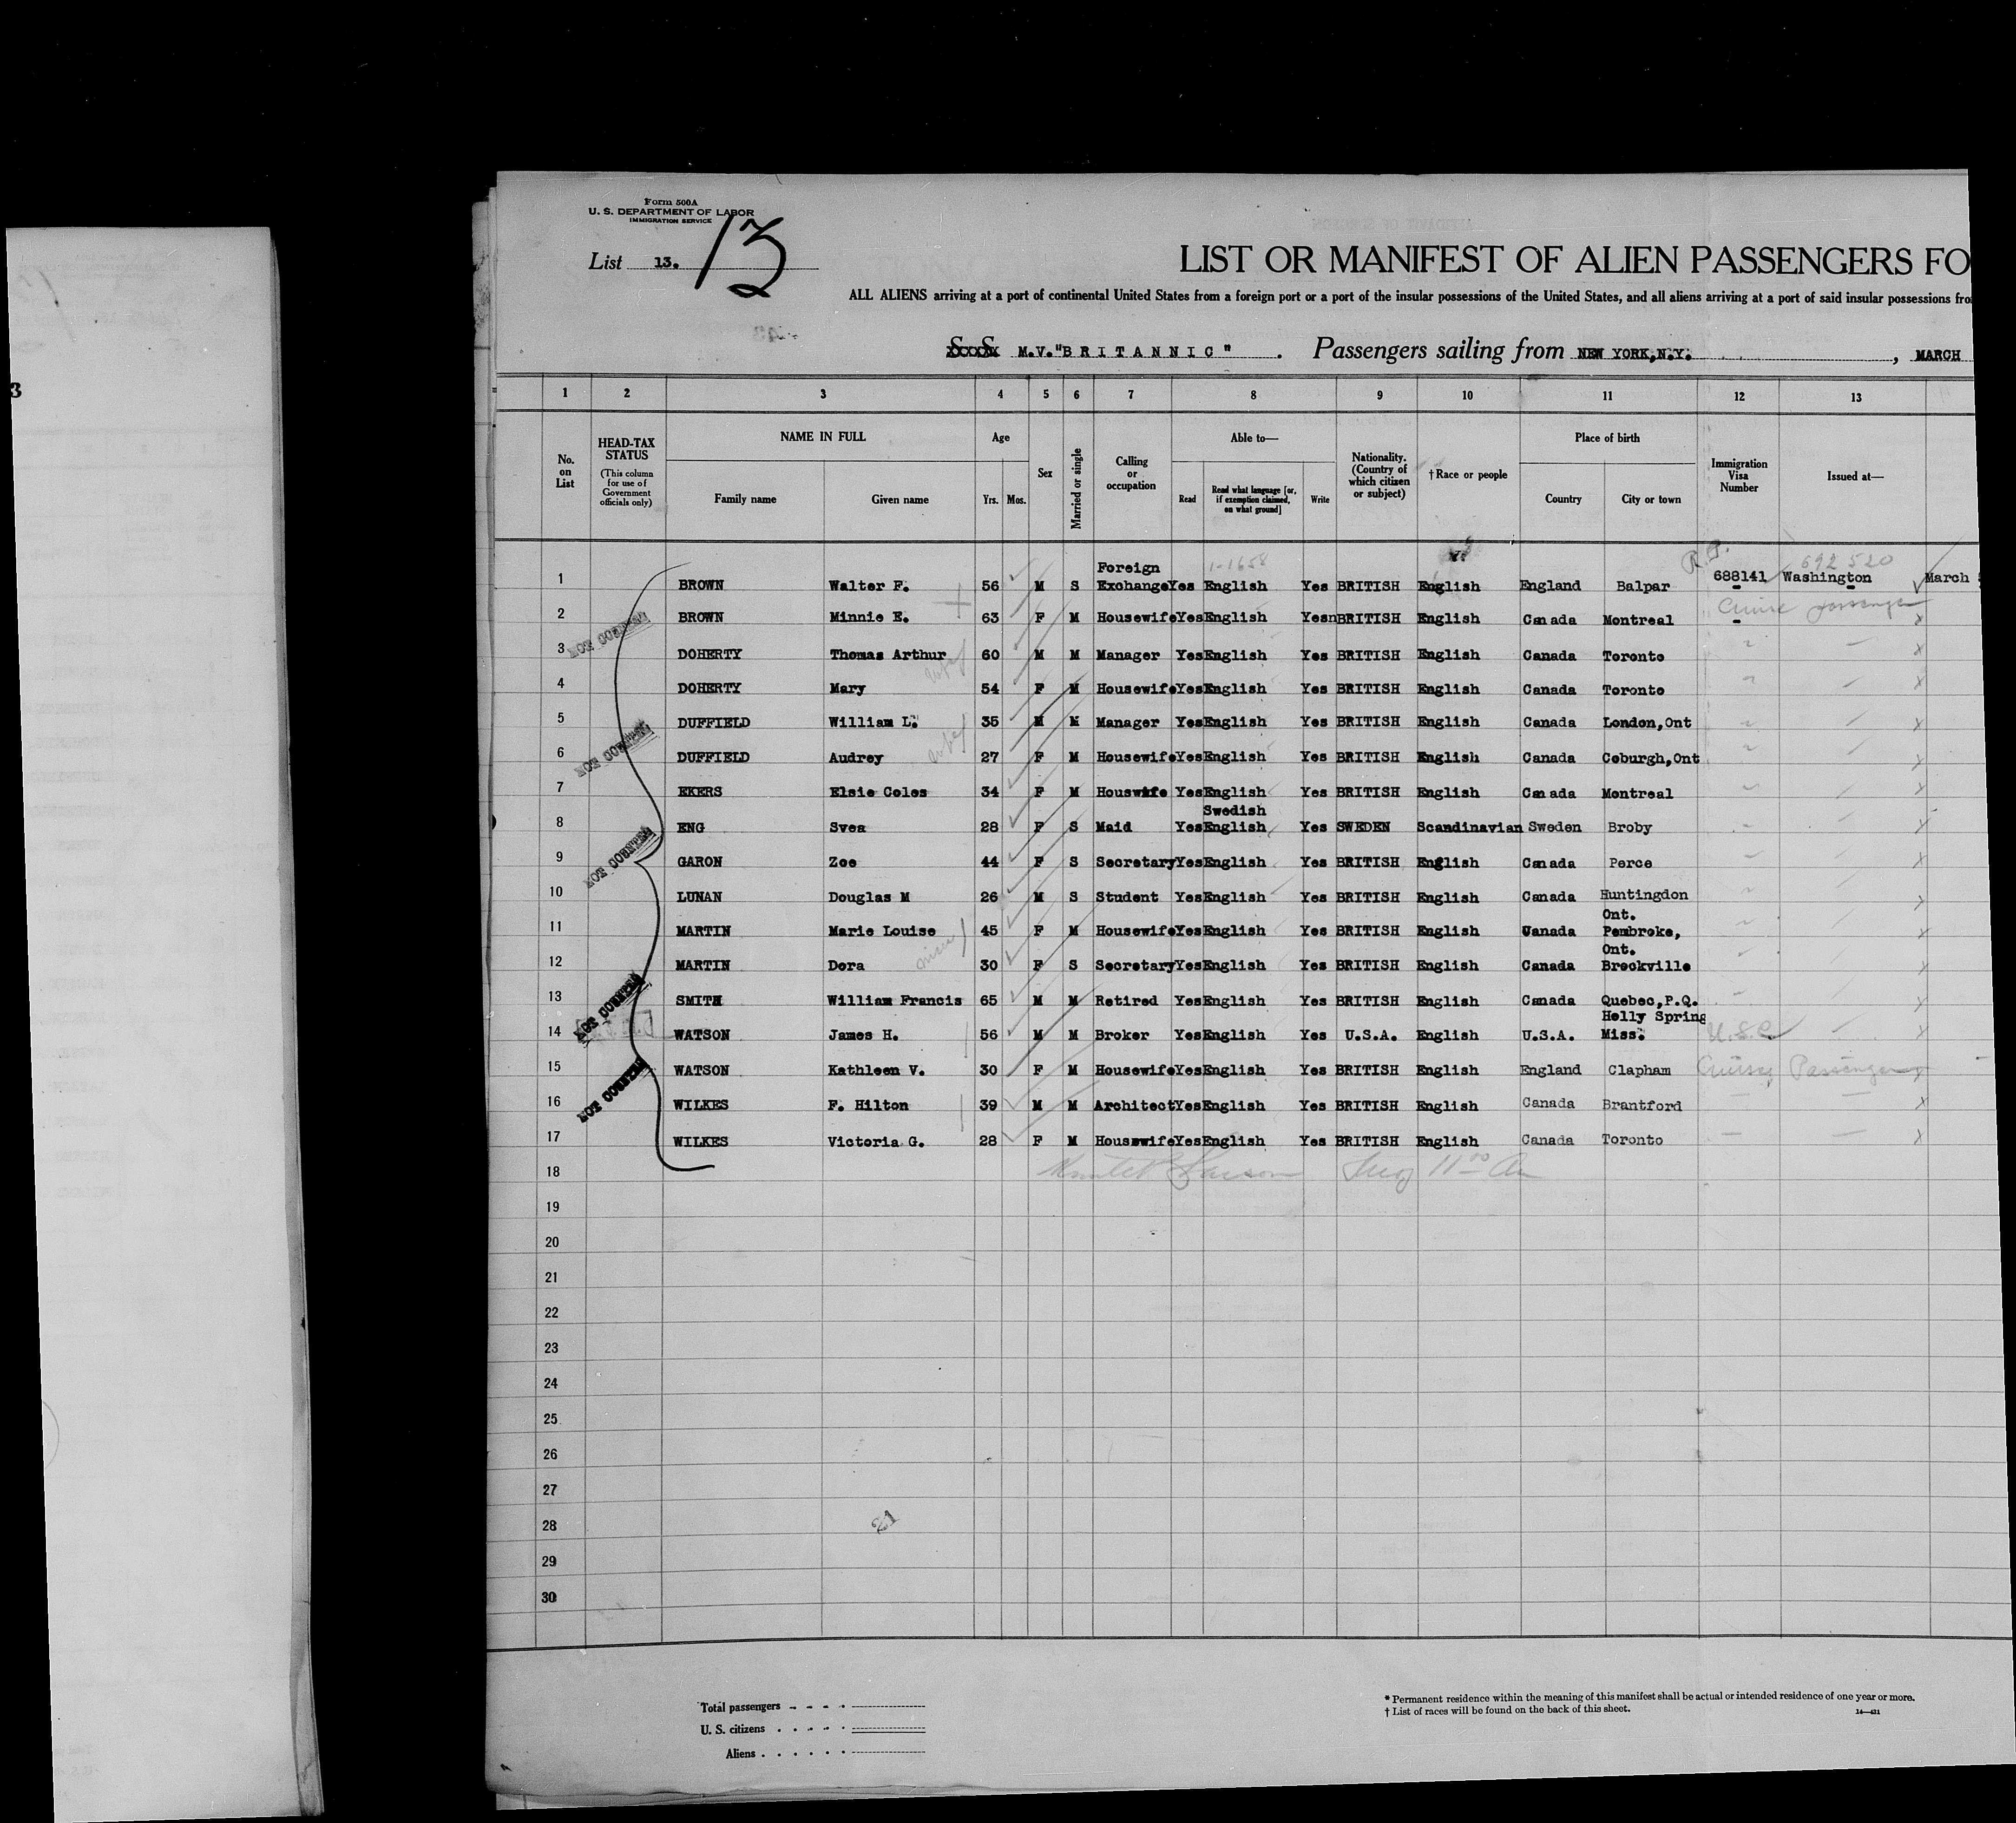 3
Form 500A
U. S. DEPARTMENT OF LABOR
IMMIGRATION SERVICE
List 13. 13
LIST OR MANIFEST OF ALIEN PASSENGERS FO
ALL ALIENS arriving at a port of continental United States from a foreign port or a port of the insular possessions of the United States, and all aliens arriving at a port of said insular possessions fro
S S M.V."BRITANNIC" . Passengers sailing from NEW YORK,N.Y. , MARCH
1 2 3 4 5 6 7 8 9 10 11 12 13
No. on List
HEAD-TAX STATUS (This column for use of Government officials only)
NAME IN FULL
Family name Given name
Age
Yrs. Mos.
Sex
Married or single
Calling or occupation
Able to—
Read Read what language [or, if exemption claimed, on what ground] Write
Nationality. (Country of which citizen or subject)
† Race or people
Place of birth
Country City or town
Immigration Visa Number
Issued at—
Foreign 1-1658 R.P. 692 520
1 BROWN Walter F. 56 M S Exchange Yes English Yes BRITISH English England Balpar 688141 Washington March
2 NOT COUNTED BROWN Minnie E. 63 F M Housewife Yes English Yesn BRITISH English Canada Montreal Cruise passenger
3 DOHERTY Thomas Arthur 60 M M Manager Yes English Yes BRITISH English Canada Toronto
4 DOHERTY Mary 54 F M Housewife Yes English Yes BRITISH English Canada Toronto
5 DUFFIELD William L. 35 M M Manager Yes English Yes BRITISH English Canada London,Ont
6 NOT COUNTED DUFFIELD Audrey 27 F M Housewife Yes English Yes BRITISH English Canada Coburgh,Ont
7 EKERS Elsie Coles 34 F M Houswife Yes English Yes BRITISH English Canada Montreal
Swedish
8 ENG Svea 28 F S Maid Yes English Yes SWEDEN Scandinavian Sweden Broby
9 NOT COUNTED GARON Zoe 44 F S Secretary Yes English Yes BRITISH English Canada Perce
10 LUNAN Douglas M 26 M S Student Yes English Yes BRITISH English Canada Huntingdon
Ont.
11 MARTIN Marie Louise 45 F M Housewife Yes English Yes BRITISH English Canada Pembroke,
Ont.
12 MARTIN Dora 30 F S Secretary Yes English Yes BRITISH English Canada Brockville
13 NOT COUNTED SMITH William Francis 65 M M Retired Yes English Yes BRITISH English Canada Quebec,P.Q.
Holly Spring
14 WATSON James H. 56 M M Broker Yes English Yes U.S.A. English U.S.A. Miss. U.S.C
15 WATSON Kathleen V. 30 F M Housewife Yes English Yes BRITISH English England Clapham Cruise Passenger
16 NOT COUNTED WILKES F. Hilton 39 M M Architect Yes English Yes BRITISH English Canada Brantford
17 WILKES Victoria G. 28 F M Housewife Yes English Yes BRITISH English Canada Toronto
18
19
20
21
22
23
24
25
26
27
28
21
29
30
Total passengers
U. S. citizens
Aliens
* Permanent residence within the meaning of this manifest shall be actual or intended residence of one year or more.
† List of races will be found on the back of this sheet.
14—421